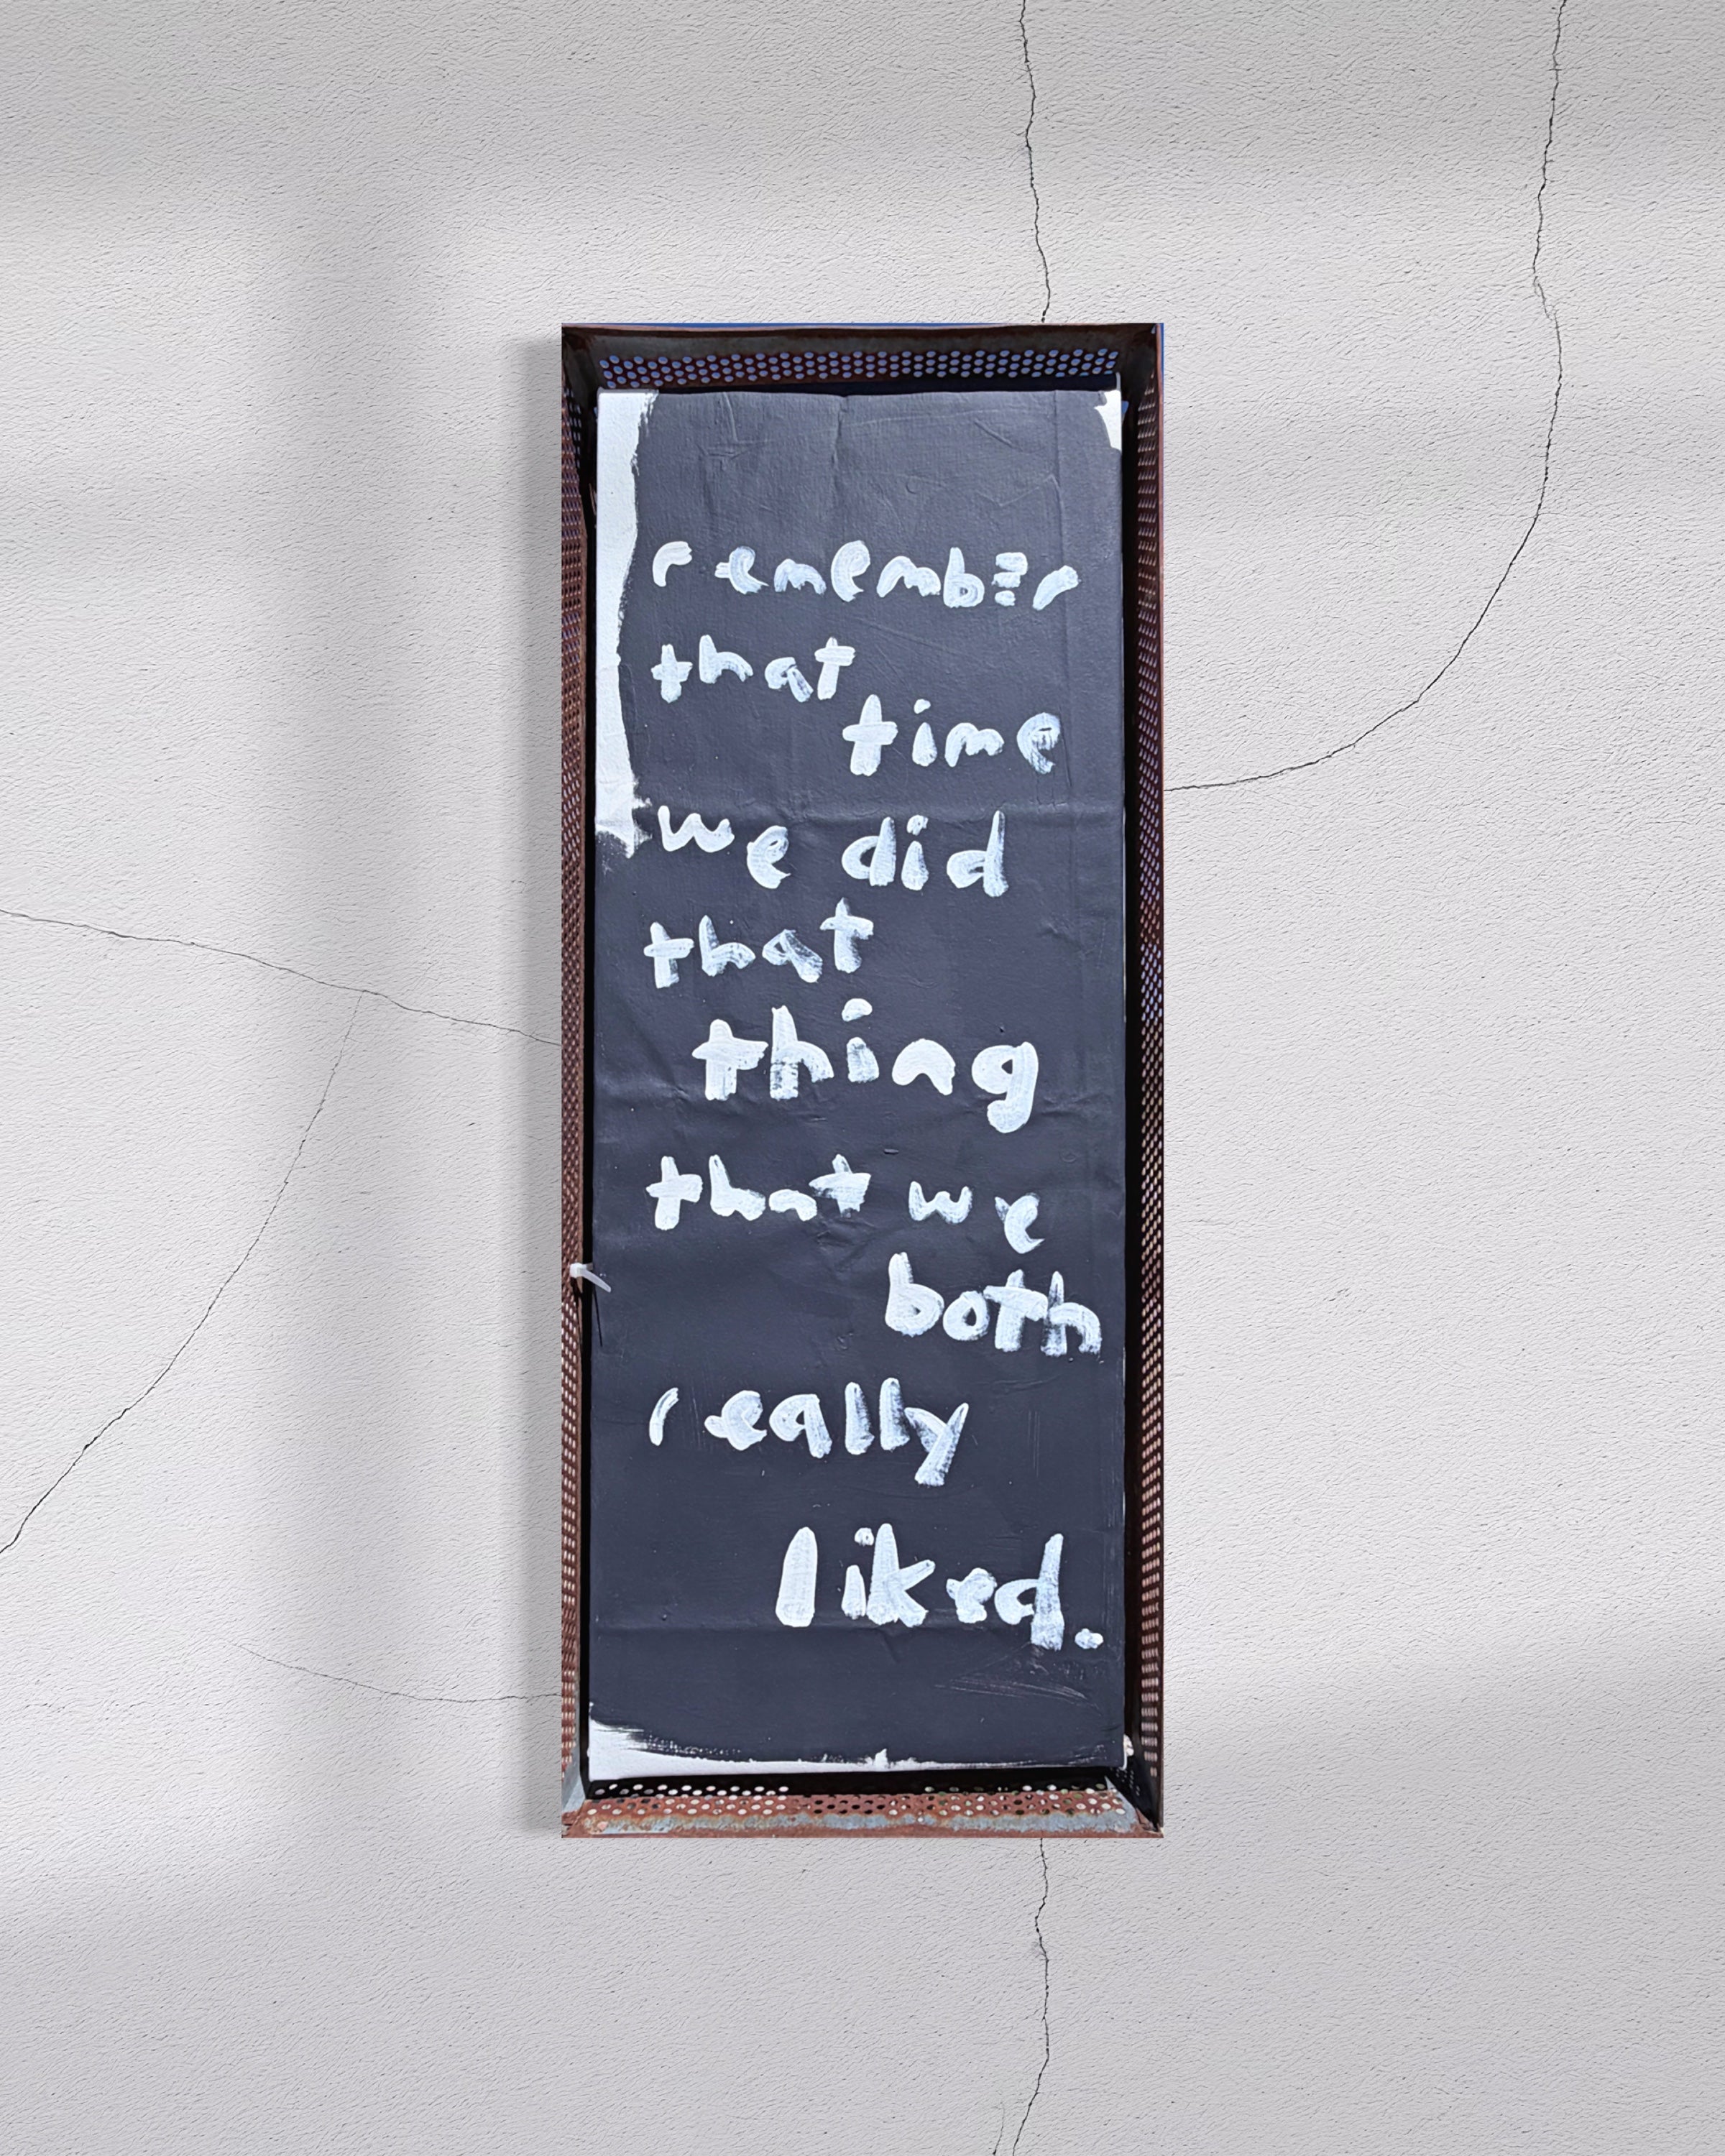 remember
that
time
we did
that
thing
that we
both
really
liked.